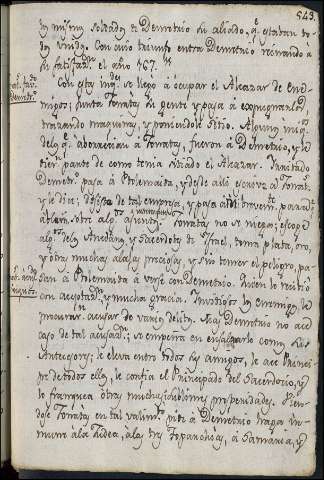 543.
los mismos soldados de Demetrio su aliado, q.e estaban to-
dos unidos. Con cuio triunfo entra Demetrico reinando a
su satisfac.n el año 167.
Con esta se llegó a ocupar el Alcazar de ene-
migos; junta Jonatas su gente y pasa a expugnarlos
trazando maquinas, y poniendole sitio. Algunos iniq.s
delos q.e aborrecian a Jonatas, fueron a Demetrio, y le
dieron parte de como tenia sitiado el Alcazar. Irritado
Demetr.o pasa a Ptolemaida, y desde alli escrive a Jonat.s
y le dice; desista de tal empresa, y pasa a
sobre alg.os asientos. Jonatas no se niega; escoje
alg.os delos Ancianos y Sacerdotes de Israel, toma plata, oro,
y otras muchas alajas preciosas, y sin temer el peligro, pa-
san a Ptolemaida a verse con Demetrio. Quien lo recibió
con aceptac.n y mucha gracia. Invidiosos los enemigos le
procuran acusar de varios delitos. Mas Demetrio no
caso de tal acusac.n; se empeña en ensalzarlo como sus
Antecesores; le eleva entre todos sus amigos, le ace Princi-
pe de todos ellos, le confia el Principado del Sacerdocio, y
le franquea otras muchisimas prosperidades. Vien-
dose Jonatas en tal valim.to pide a Demetrio haga in-
mune ala Judea, alas tres Topanchias, a Samaria, y